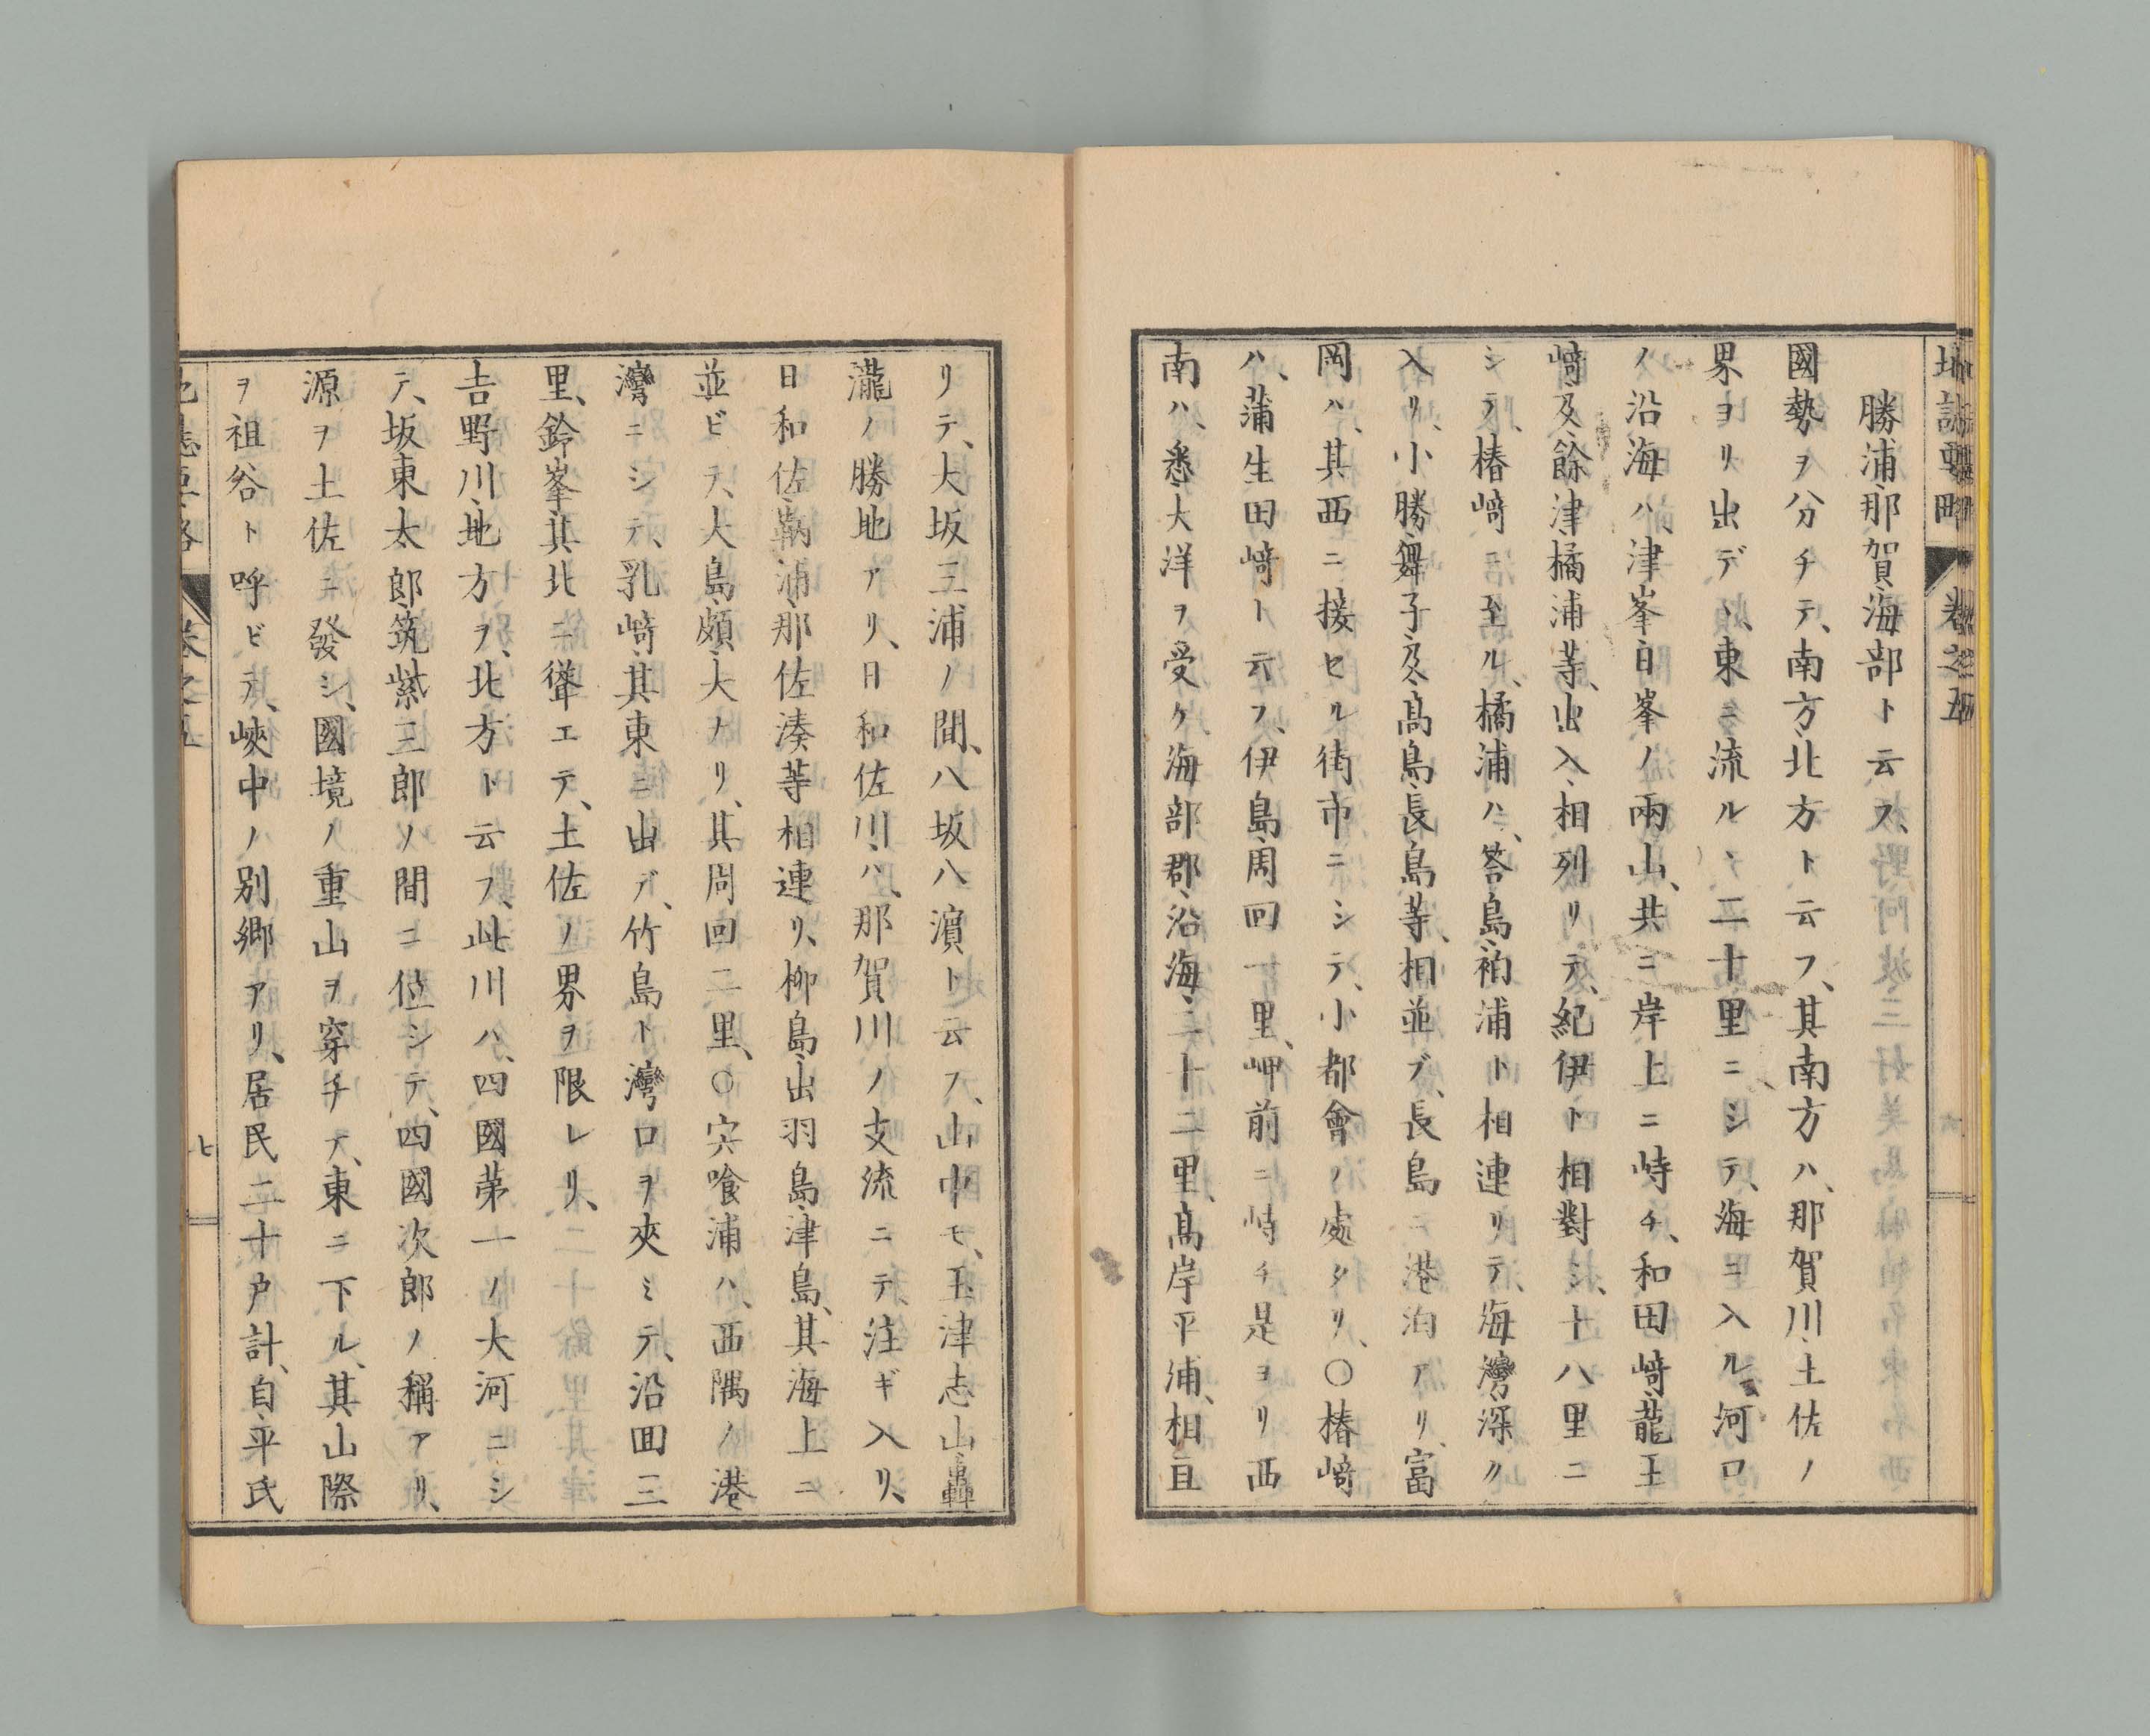 地誌要略 卷之五
勝浦、那賀、海部ト云フ、
國勢ヲ分チテ、南方、北方ト云フ、其南方ハ、那賀川、土佐ノ
界ヨリ出デ、東ニ流ルヽ、二十里ニシテ、海ニ入ル、河口
ノ沿海ハ、津峯、日峯ノ兩山、共ニ岸上ニ峙チ、和田﨑、龍王
﨑、及餘津、橘浦等、出入相列リテ、紀伊ト相對シ、十八里ニ
シテ、椿﨑ニ至ル、橘浦ハ、答島、袙浦ト相連リテ、海灣深ク
入リ、小勝、舞子、及髙島、長島等、相並ブ、長島ニ港泊アリ、富
岡ハ、其西ニ接セル街市ニシテ、小都會ノ處タリ、〇椿﨑
ハ、蒲生田﨑ト云フ、伊島、周回一里、岬前ニ峙チ是ヨリ西
南ハ、悉大洋ヲ受ケ、海部郡、沿海、二十二里、髙岸平浦、相亘
リテ、大坂三浦ノ間、八坂八濵ト云フ、山中モ、玉津志山、轟
瀧ノ勝地アリ、日和佐川ハ、那賀川ノ支流ニテ、注ギ入リ、
日和佐、鞆浦、那佐湊等相連リ、柳島、出羽島、津島、其海上ニ
並ビテ、大島、頗大ナリ、其周回二里、〇宍喰浦ハ、西隅ノ港
灣ニシテ、乳﨑、其東ニ出デ、竹島ト灣口ヲ夾ミテ、沿回三
里、鈴峯、其北ニ聳エテ、土佐ノ界ヲ限レリ、
吉野川、地方ヲ、北方ト云フ、此川ハ、四國第一ノ大河ニシ
テ、坂東太郎、筑紫三郎ノ間ニ位シテ、四國次郎ノ稱アリ、
源ヲ土佐ニ發シ、國境ノ重山ヲ穿チテ、東ニ下ル、其山際
ヲ祖谷ト呼ビテ、峽中ノ別郷アリ、居民二十戸計、自平氏
地誌要略 卷之五 七